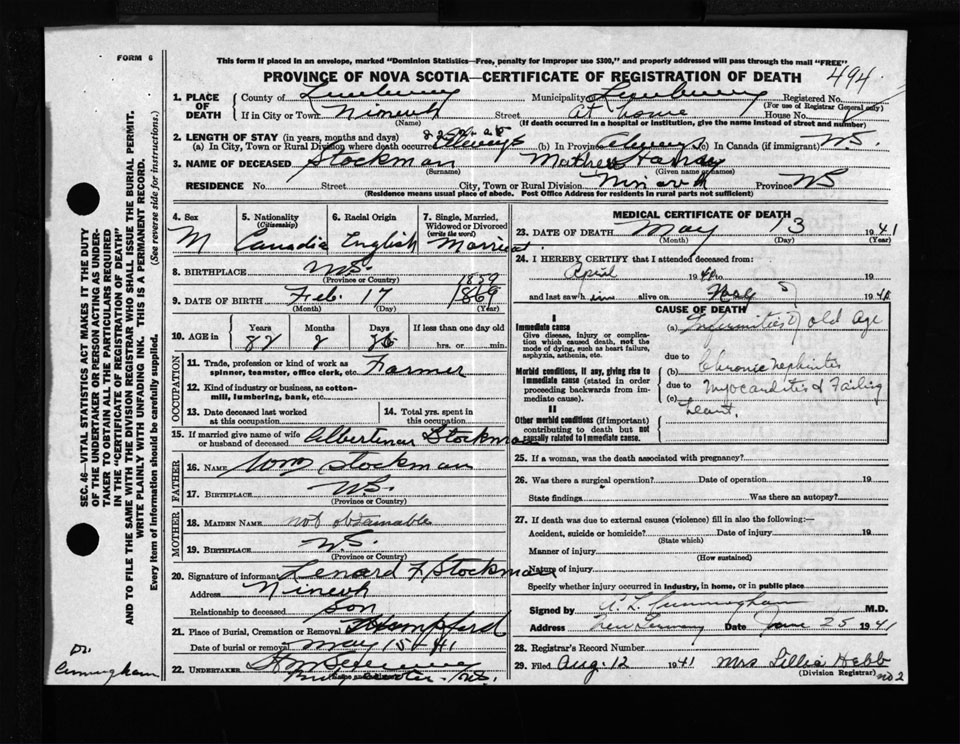 FORM 6
This form if placed in an envelope, marked "Dominion Statistics—Free, penalty for improper use $300," and properly addressed will pass through the mail "FREE"
PROVINCE OF NOVA SCOTIA—CERTIFICATE OF REGISTRATION OF DEATH
494
1. PLACE OF DEATH County of Lunenburg Municipality of Lunenburg Registered No.
(For use of Registrar General only)
If in City or Town Ninevah Street at home House No.
(Name) (If death occurred in a hospital or institution, give the name instead of street and number)
2. LENGTH OF STAY (in years, months and days)
(a) In City, Town or Rural Division where death occurred (b) In Province always (c) In Canada (if immigrant) N.S.
3. NAME OF DECEASED Stockman Mathew Harvey
(Surname) (Given name or names)
RESIDENCE No. Street City, Town or Rural Division Ninevah Province NS
(Residence means usual place of abode. Post Office Address for residents in rural parts not sufficient)
4. Sex M
5. Nationality (Citizenship) Canadia
6. Racial Origin English
7. Single, Married, Widowed or Divorced (write the word) Married
8. BIRTHPLACE N.S.
(Province or Country)
9. DATE OF BIRTH Feb. 17 1859 1869
(Month) (Day) (Year)
10. AGE in Years Months Days If less than one day old
82 2 26 hrs. or min.
OCCUPATION
11. Trade, profession or kind of work as spinner, teamster, office clerk, etc. Farmer
12. Kind of industry or business, as cotton-mill, lumbering, bank, etc.
13. Date deceased last worked at this occupation
14. Total yrs. spent in this occupation
15. If married give name of wife or husband of deceased Stockman
FATHER
16. NAME Wm Stockman
17. BIRTHPLACE N.S.
(Province or Country)
MOTHER
18. MAIDEN NAME not obtainable
19. BIRTHPLACE N.S.
(Province or Country)
20. Signature of informant Lenard F. Stockman
Address Ninevh
Relationship to deceased son
21. Place of Burial, Cremation or Removal Hempford
Date of burial or removal May 15-41
22. UNDERTAKER
(Name and address) Bridgewater N.S.
MEDICAL CERTIFICATE OF DEATH
23. DATE OF DEATH May 13 1941
(Month) (Day) (Year)
24. I HEREBY CERTIFY that I attended deceased from:
April 1941 to 19
and last saw him alive on May 1941
CAUSE OF DEATH
I
Immediate cause
Give disease, injury or complication which caused death, not the mode of dying, such as heart failure, asphyxia, asthenia, etc.
(a) Infirmities of old age
due to
Morbid conditions, if any, giving rise to immediate cause (stated in order proceeding backwards from immediate cause).
(b) Chronic nephritis
due to
(c) Myocarditis & Failing
heart.
II
Other morbid conditions (if important) contributing to death but not causally related to immediate cause.
25. If a woman, was the death associated with pregnancy?
26. Was there a surgical operation? Date of operation 19
State findings Was there an autopsy?
27. If death was due to external causes (violence) fill in also the following:—
Accident, suicide or homicide? Date of injury 19
(State which)
Manner of injury
(How sustained)
Nature of injury
Specify whether injury occurred in industry, in home, or in public place
Signed by Cunningham M.D.
Address New Germany Date June 25 1941
28. Registrar's Record Number
29. Filed Aug. 12 1941 Mrs Lillie Hebb
(Division Registrar) no 2
SEC. 46—VITAL STATISTICS ACT MAKES IT THE DUTY
OF THE UNDERTAKER OR PERSON ACTING AS UNDER-
TAKER TO OBTAIN ALL THE PARTICULARS REQUIRED
IN THE "CERTIFICATE OF REGISTRATION OF DEATH"
AND TO FILE THE SAME WITH THE DIVISION REGISTRAR WHO SHALL ISSUE THE BURIAL PERMIT.
WRITE PLAINLY WITH UNFADING INK. THIS IS A PERMANENT RECORD.
Every item of information should be carefully supplied. (See reverse side for instructions.)
Dr.
Cunningham